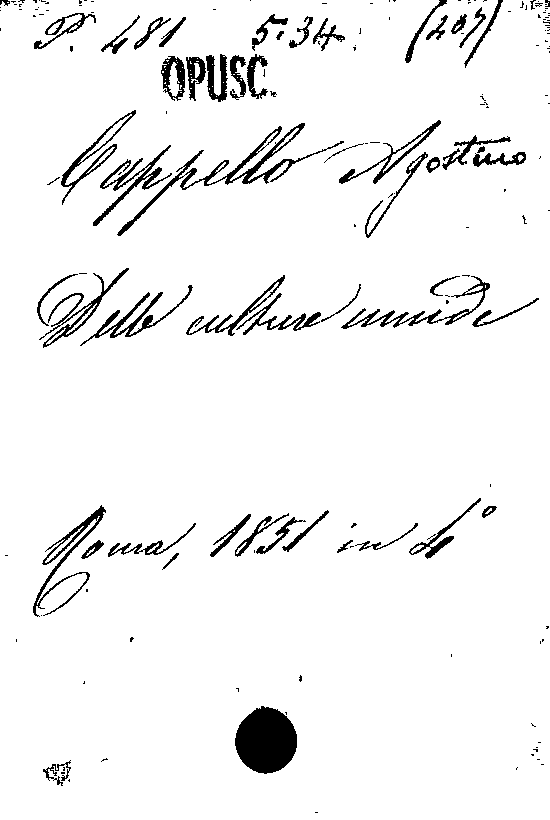 P. 481 5.34. (20,7)
OPUSC.
Cappello Agostino
Delle culture umide
Roma, 1851 in 4°